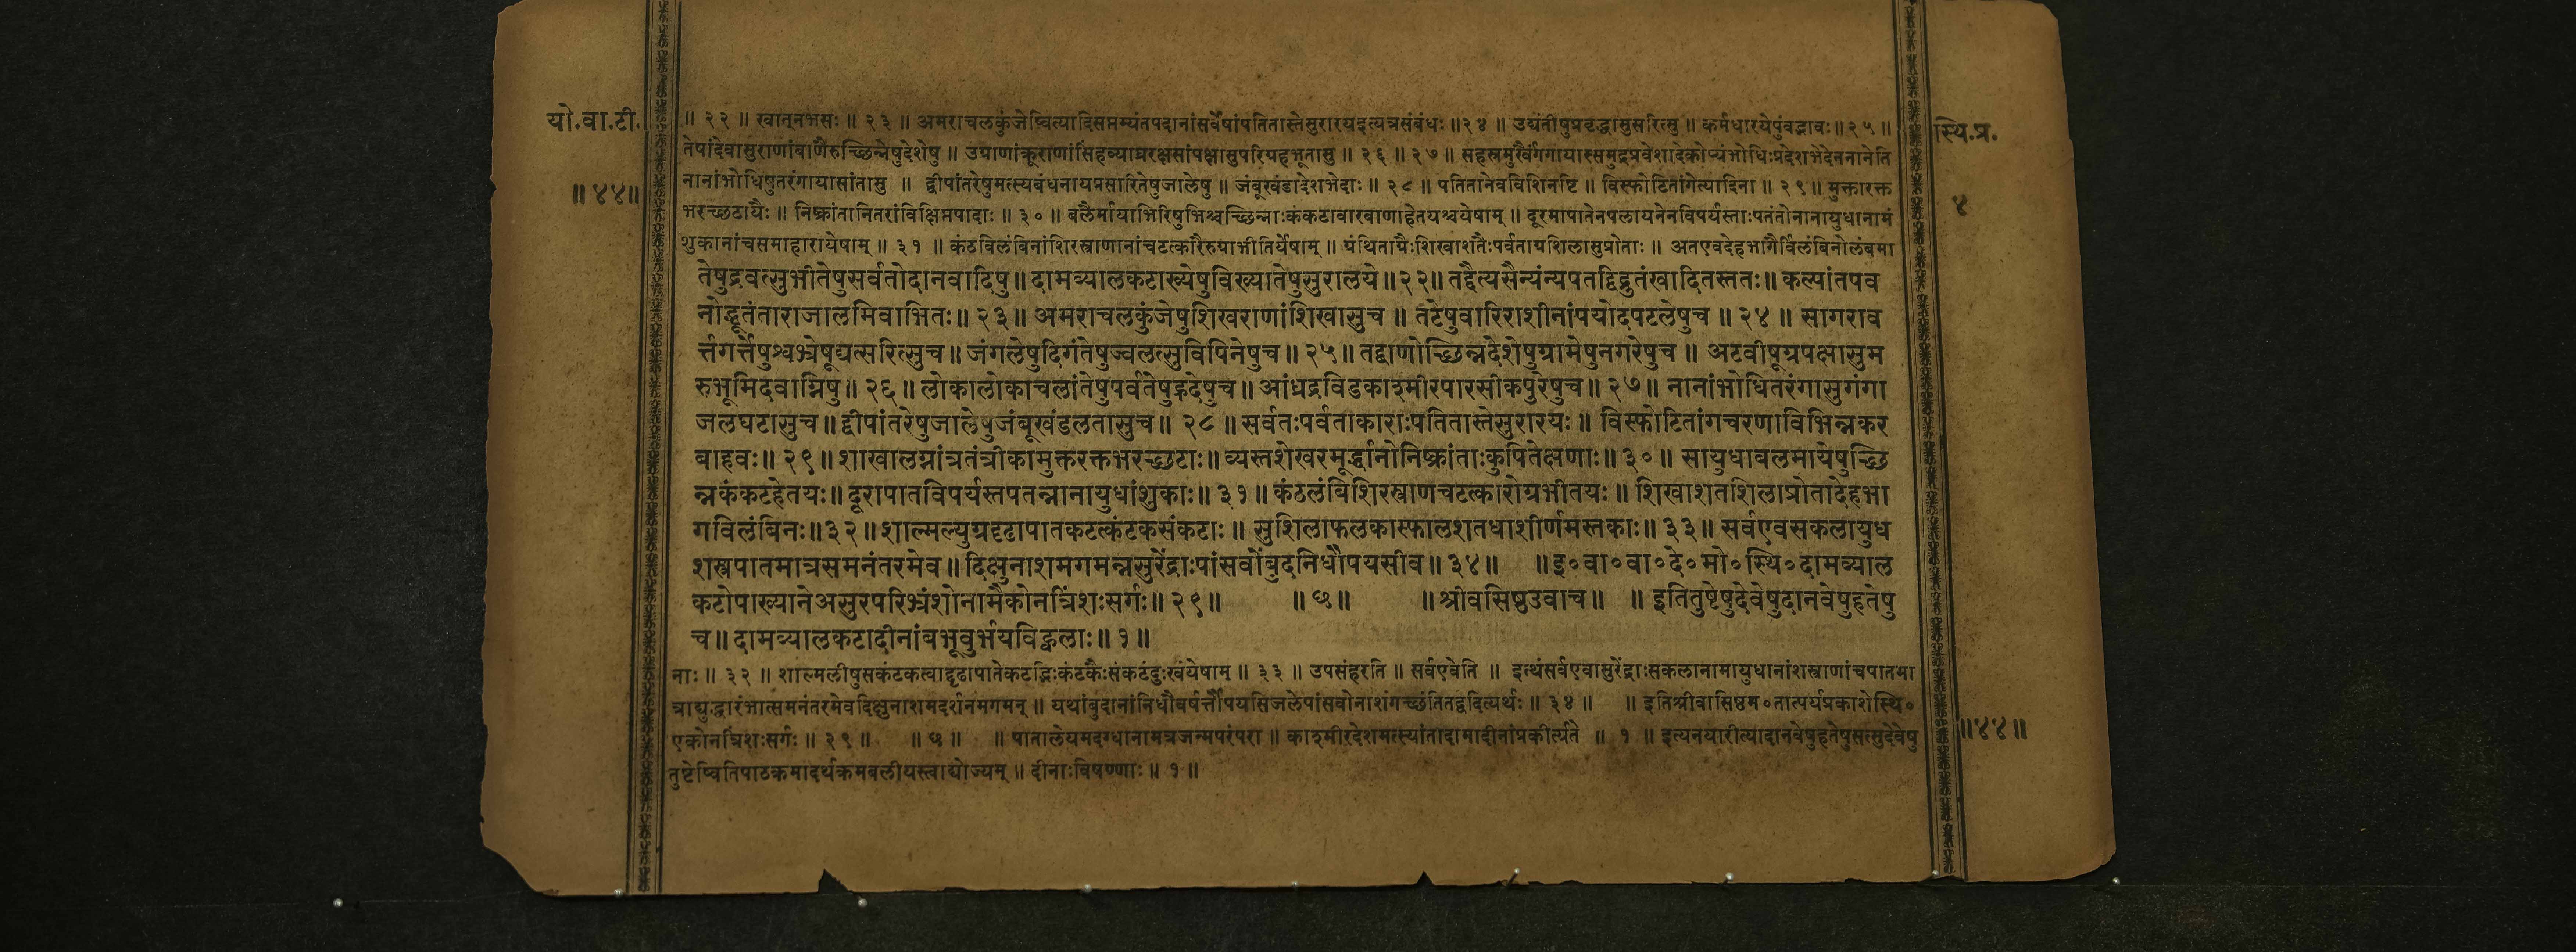 यो.वा.टी.
॥ ४४॥
॥ २२ ॥ खात्नभसः ॥ २३ ॥ अमराचलकुंजेष्वित्यादिसप्तम्यंतपदानांसर्वेषांपतितास्तेसुरारयइत्यत्रसंबंधः ॥२४ ॥ उद्यंतीषुप्रवृद्धासुसरित्सु ॥ कर्मधारयेपुंवद्भावः॥२५॥
तेषांदेवासुराणांबाणैरुच्छिन्नेषुदेशेषु ॥ उग्राणांक्रूराणांसिंहव्याघ्ररक्षसांपक्षासुपरिग्रहभूतासु ॥ २६ ॥ २७ ॥ सहस्रमुखैर्गंगायाःसमुद्रप्रवेशादेकोप्यंभोधिःप्रदेशभेदेननानेति
नानांभोधिषुतरंगायासांतासु ॥ द्वीपांतरेषुमत्स्यबंधनायप्रसारितेषुजालेषु ॥ जंबूखंडादेशभेदाः ॥ २८ ॥ पतितानेवविशिनष्टि ॥ विस्फोटितांगेत्यादिना ॥ २९॥ मुक्तारक्त
भरच्छटायैः ॥ निष्क्रांतानितरांविक्षिप्तपादाः ॥ ३० ॥ बलैर्मायाभिरिषुभिश्चच्छिन्नाःकंकटावारबाणाहेतयश्चयेषाम् ॥ दूरमापातेनपलायनेनविपर्यस्ताःपतंतोनानायुधानामं
शुकानांचसमाहारायेषाम् ॥ ३१ ॥ कंठविलंबिनांशिरस्त्राणानांचटत्कारैरुग्राभीतिर्येषाम् ॥ ग्रंथिताग्रैःशिखाशतैःपर्वताग्रशिलासुप्रोताः ॥ अतएवदेहभागैर्विलंबिनोलंबमा
तेषुद्रवत्सुभीतेषुसर्वतोदानवादिषु॥ दामव्यालकटाख्येषुविख्यातेषुसुरालये॥२२॥ तद्दैत्यसैन्यंन्यपतद्विद्रुतंखादितस्ततः॥ कल्पांतपव
नोद्धूतंताराजालमिवाभितः॥ २३॥ अमराचलकुंजेषुशिखराणांशिखासुच ॥ तटेषुवारिराशीनांपयोदपटलेषुच ॥ २४ ॥ सागराव
र्त्तगर्त्तेषुश्वभ्रेषूद्यत्सरित्सुच॥ जंगलेषुदिगंतेषुज्वलत्सुविपिनेषुच॥ २५॥ तद्बाणोच्छिन्नदेशेषुग्रामेषुनगरेषुच ॥ अटवीषूग्रपक्षासुम
रुभूमिदवाग्निषु॥ २६॥ लोकालोकाचलांतेषुपर्वतेषुह्रदेषुच॥ आंध्रद्रविडकाश्मीरपारसीकपुरेषुच॥ २७॥ नानांभोधितरंगासुगंगा
जलघटासुच॥ द्वीपांतरेषुजालेषुजंबूखंडलतासुच॥ २८ ॥ सर्वतःपर्वताकाराःपतितास्तेसुरारयः ॥ विस्फोटितांगचरणाविभिन्नकर
बाहवः॥ २९॥ शाखालग्नांत्रतंत्रीकामुक्तरक्तभरच्छटाः॥ व्यस्तशेखरमूर्द्धानोनिष्क्रांताःकुपितेक्षणाः॥ ३०॥ सायुधाबलमायेषुच्छि
न्नकंकटहेतयः॥ दूरापातविपर्यस्तपतन्नानायुधांशुकाः॥ ३१॥ कंठलंबिशिरस्त्राणचटत्कारोग्रभीतयः ॥ शिखाशतशिलाप्रोतादेहभा
गविलंबिनः॥३२॥ शाल्मल्युग्रदृढापातकटत्कंटकसंकटाः ॥ सुशिलाफलकास्फालशतधाशीर्णमस्तकाः॥ ३३॥ सर्वएवसकलायुध
शस्त्रपातमात्रसमनंतरमेव॥ दिक्षुनाशमगमन्नसुरेंद्राःपांसवोंबुदनिधौपयसीव॥ ३४॥ ॥इ०वा०वा०दे०मो०स्थि०दामव्याल
कटोपाख्यानेअसुरपरिभ्रंशोनामैकोनत्रिंशःसर्गः॥ २९॥ ॥ ७॥ ॥श्रीवसिष्ठउवाच॥ ॥ इतितुष्टेषुदेवेषुदानवेषुहतेषु
च॥ दामव्यालकटादीनांबभूवुर्भयविह्वलाः॥ १॥
नाः॥ ३२ ॥ शाल्मलीषुसकंटकत्वाद्दृढापातेकटद्भिःकंटकैःसंकटंदुःखंयेषाम् ॥ ३३ ॥ उपसंहरति ॥ सर्वएवेति ॥ इत्थंसर्वएवासुरेंद्राःसकलानामायुधानांशस्त्राणांचपातमा
त्राद्युद्धारंभात्समनंतरमेवदिक्षुनाशमदर्शनमगमन् ॥ यथांबुदानांनिधौवर्षर्त्तौपयसिजलेपांसवोनाशंगच्छंतितद्वदित्यर्थः ॥ ३४ ॥ ॥ इतिश्रीवासिष्ठम०तात्पर्यप्रकाशेस्थि०
एकोनत्रिंशःसर्गः ॥ २९ ॥ ॥ ७ ॥ ॥ पातालेयमदग्धानामत्रजन्मपरंपरा ॥ काश्मीरदेशमत्स्यांतादामादीनांप्रकीर्त्यते ॥ १ ॥ इत्यनयारीत्यादानवेषुहतेषुसत्सुदेवेषु
तुष्टेष्वितिपाठक्रमादर्थक्रमबलीयस्त्वाद्योज्यम् ॥ दीनाःविषण्णाः ॥ १ ॥
स्थि.प्र.
४
॥४४॥